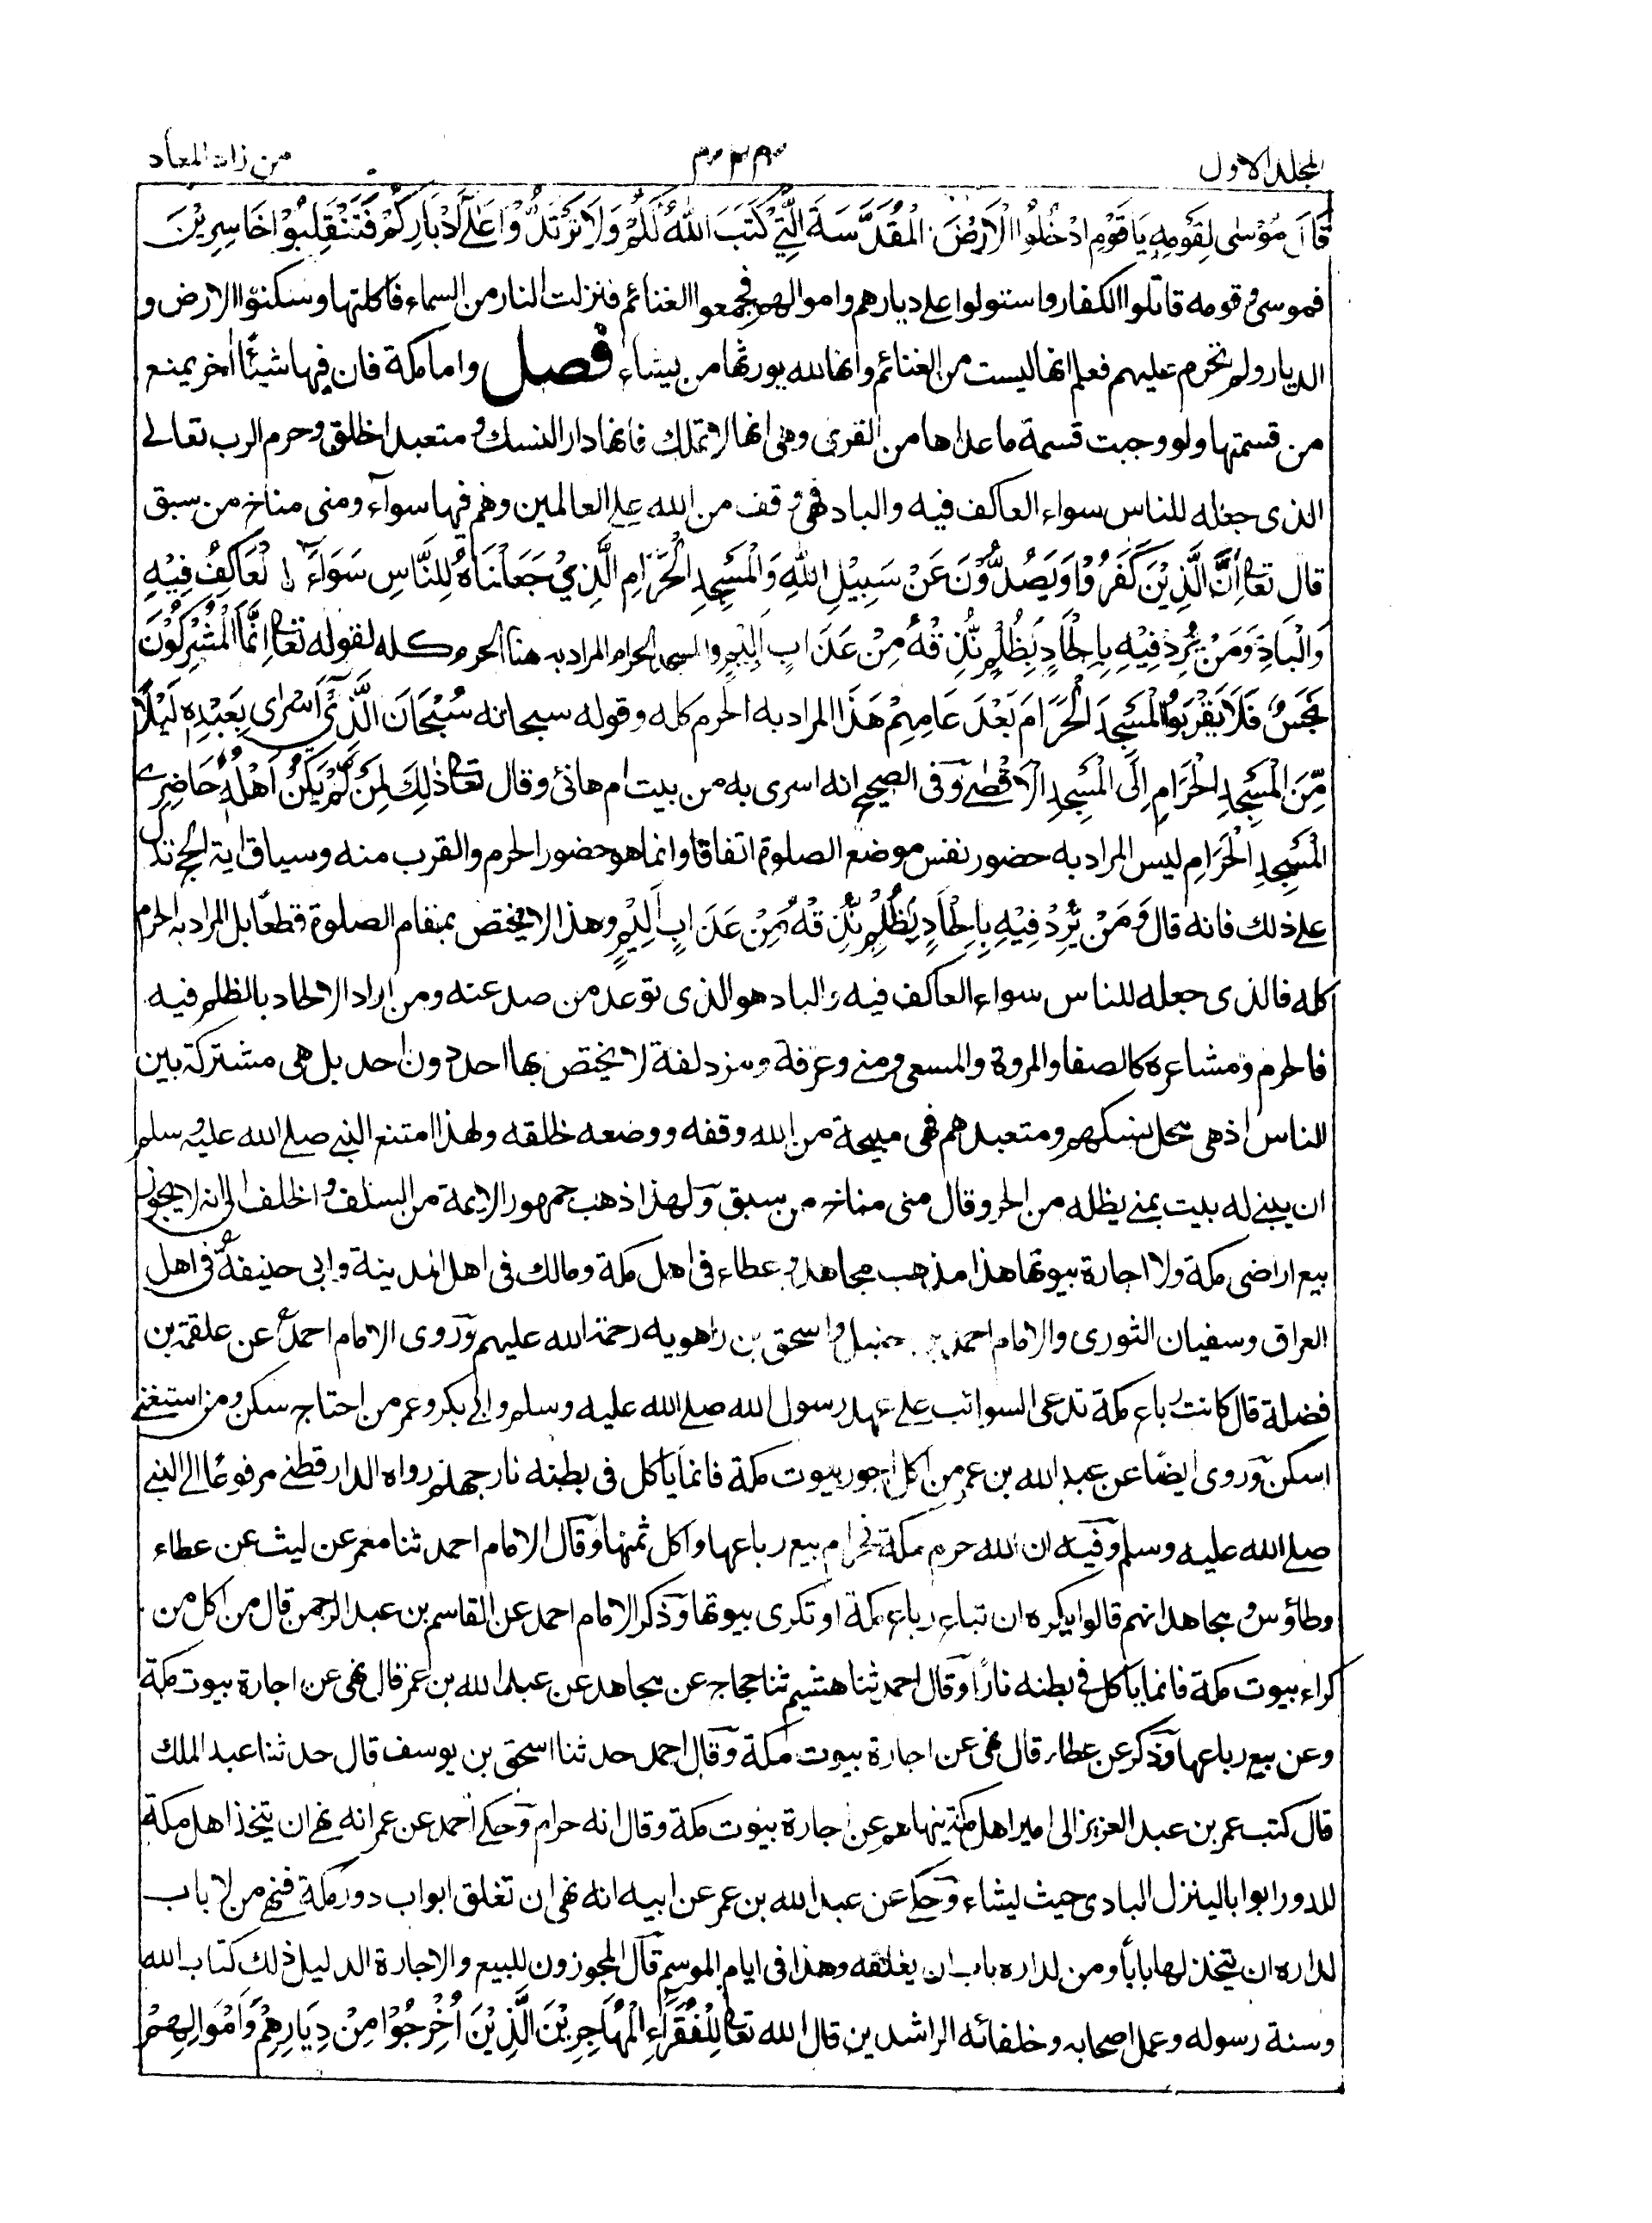 المجلد الاول
من زاد المعاد
قَالَ مُوْسٰى لِقَوْمِهٖ يَا قَوْمِ ادْخُلُوا الْاَرْضَ الْمُقَدَّسَةَ الَّتِيْ كَتَبَ اللّٰهُ لَكُمْ وَلَا تَرْتَدُّوْا عَلٰٓى اَدْبَارِكُمْ فَتَنْقَلِبُوْا خَاسِرِيْنَ
فموسى وقومه قاتلوا الكفار واستولوا على ديارهم واموالهم فجمعوا الغنائم فنزلت النار من السماء فاكلتها وسكنوا الارض و
الديار ولم تحرم عليهم فعلم انها ليست من الغنائم وانها لله يورثها من يشاء فصل واما مكة فان فيها شيئًا اٰخر يمنع
من قسمتها ولو وجبت قسمة ما عداها من القرى وهى انها لا تملك فانها دار النسك ومتعبد الخلق وحرم الرب تعالى
الذى جعله للناس سواء العاكف فيه والباد فهى وقف من الله على العالمين وهم فيها سوآء ومنى مناخ من سبق
قال تعا اِنَّ الَّذِيْنَ كَفَرُوْا وَيَصُدُّوْنَ عَنْ سَبِيْلِ اللّٰهِ وَالْمَسْجِدِ الْحَرَامِ الَّذِيْ جَعَلْنَاهُ لِلنَّاسِ سَوَآءَ ۨ الْعَاكِفُ فِيْهِ
وَالْبَادِ وَمَنْ يُّرِدْ فِيْهِ بِاِلْحَادٍ بِظُلْمٍ نُّذِقْهُ مِنْ عَذَابٍ اَلِيْمٍ والمسجد الحرام المراد به هنا الحرم كله لقوله تعا اِنَّمَا الْمُشْرِكُوْنَ
نَجَسٌ فَلَا يَقْرَبُوا الْمَسْجِدَ الْحَرَامَ بَعْدَ عَامِهِمْ هٰذَا المراد به الحرم كله وقوله سبحانه سُبْحَانَ الَّذِيْٓ اَسْرٰى بِعَبْدِهٖ لَيْلًا
مِّنَ الْمَسْجِدِ الْحَرَامِ اِلَى الْمَسْجِدِ الْاَقْصٰى وفى الصحيح انه اسرى به من بيت ام هانئ وقال تعا ذٰلِكَ لِمَنْ لَّمْ يَكُنْ اَهْلُهٗ حَاضِرِى
الْمَسْجِدِ الْحَرَامِ ليس المراد به حضور نفس موضع الصلوة اتفاقا وانما هو حضور الحرم والقرب منه وسياق اٰية الحج تدل
على ذلك فانه قال وَمَنْ يُّرِدْ فِيْهِ بِاِلْحَادٍ بِظُلْمٍ نُّذِقْهُ مِنْ عَذَابٍ اَلِيْمٍ وهذا لا يختص بمقام الصلوة قطعًا بل المراد به الحرم
كله فالذى جعله للناس سواء العاكف فيه والباد هو الذى توعد من صد عنه ومن اراد الالحاد بالظلم فيه
فالحرم ومشاعره كالصفا والمروة والمسعى ومنى وعرفة ومزدلفة لا يختص بها احد دون احد بل هى مشتركة بين
الناس اذ هى محل نسكهم ومتعبدهم فهى مسجد من الله وقفه ووضعه لخلقه ولهذا امتنع النبى صلى الله عليه وسلم
ان يبنى له بيت بمنى يظله من الحر وقال منى مناخ من سبق ولهذا ذهب جمهور الايمة من السلف والخلف الى انه لا يجوز
بيع اراضى مكة ولا اجارة بيوتها هذا مذهب مجاهد وعطاء فى اهل مكة ومالك فى اهل المدينة وابى حنيفة فى اهل
العراق وسفيان الثورى والامام احمد بن حنبل واسحق بن راهويه رحمة الله عليهم وروى الامام احمد عن علقمة بن
فضلة قال كانت رباع مكة تدعى السوائب على عهد رسول الله صلى الله عليه وسلم وابى بكر وعمر من احتاج سكن ومن استغنى
اسكن وروى ايضًا عن عبد الله بن عمر من اكل اجور بيوت مكة فانما ياكل فى بطنه نار جهنم رواه الدارقطنى مرفوعًا الى النبى
صلى الله عليه وسلم وفيه ان الله حرم مكة فحرام بيع رباعها واكل ثمنها وقال الامام احمد ثنا معمر عن ليث عن عطاء
وطاؤس ومجاهد انهم قالوا يكره ان تباع رباع مكة او تكرى بيوتها وذكر الامام احمد عن القاسم بن عبد الرحمن قال من اكل من
كراء بيوت مكة فانما ياكل فى بطنه نارًا وقال احمد ثنا هشيم ثنا حجاج عن مجاهد عن عبد الله بن عمر قال نهى عن اجارة بيوت مكة
وعن بيع رباعها وذكر عن عطاء قال نهى عن اجارة بيوت مكة وقال احمد حدثنا اسحق بن يوسف قال حدثنا عبد الملك
قال كتب عمر بن عبد العزيز الى امير اهل مكة ينهاهم عن اجارة بيوت مكة وقال انه حرام وحكى احمد عن عمر انه نهى ان يتخذ اهل مكة
للدور ابوابا لينزل البادى حيث يشاء وحكى عن عبد الله بن عمر عن ابيه انه نهى ان تغلق ابواب دور مكة فنهى من لا باب
لداره ان يتخذ لها بابًا ومن لداره باب ان يغلقه وهذا فى ايام الموسم قال المجوزون للبيع والاجارة الدليل ذلك كتاب الله
وسنة رسوله وعمل اصحابه وخلفائه الراشدين قال الله تعا لِلْفُقَرَآءِ الْمُهَاجِرِيْنَ الَّذِيْنَ اُخْرِجُوْا مِنْ دِيَارِهِمْ وَاَمْوَالِهِمْ